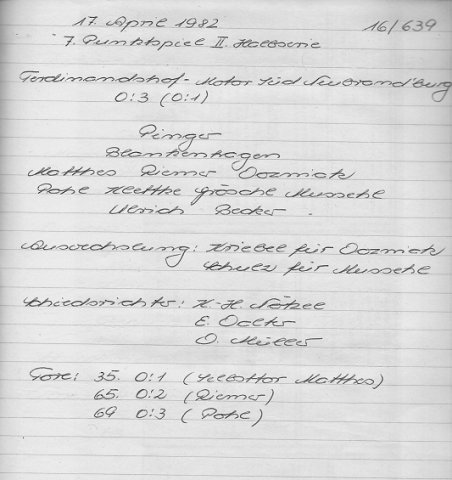 17. April 1982 16/639
7. Punktspiel II. Halbserie
Ferdinandshof - Motor Süd Neubrand'burg
0:3 (0:1)
Pinger
Blankenhagen
Matthes Riemer Dozmick
Pohl Kletthe Grösche Musschl
Ulrich Becker .
Auswechslung: Kriebel für Dozmick
Schulz für Musschl
Schiedsrichter: K.-H. Nötzel
E. Dolts
O. Müller
Tore: 35. 0:1 (Selbsttor Matthes)
65. 0:2 (Riemer)
69 0:3 (Pohl)